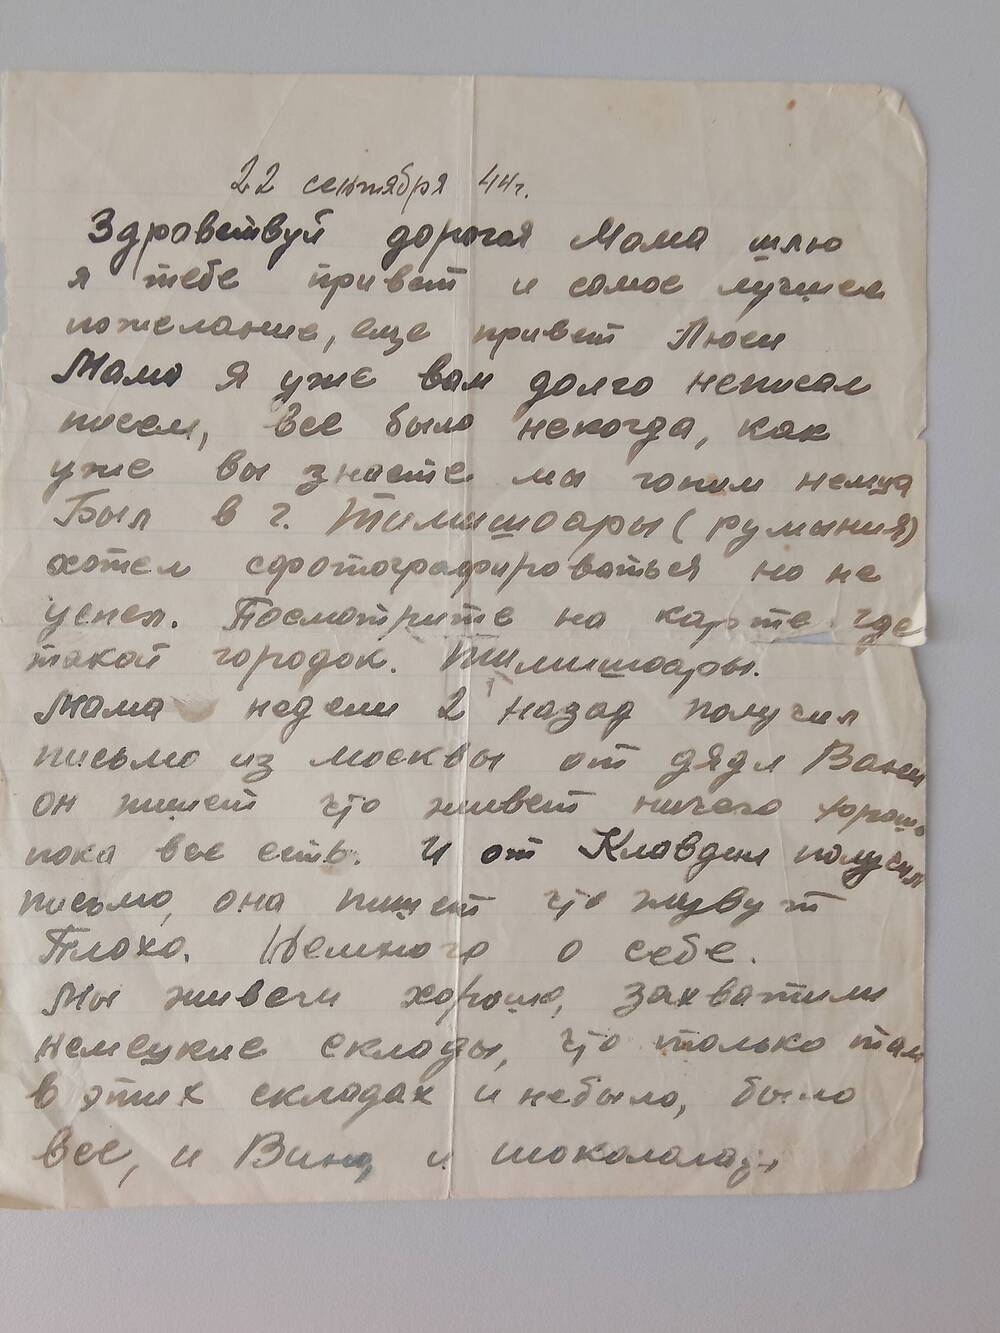 22 сентября 44г.
Здравствуй дорогая Мама шлю
я тебе привет и самое лучшее
пожелание, еще привет Люси
Мама я уже вам долго неписал
писем, все было некогда, как
уже вы знаете мы гоним немца
Был в г. Тимишоары (румыния)
хотел сфотографироваться но не
успел. Посмотрите на карте где
такой городок. Тимишоары.
Мама недели 2 назад получил
письмо из москвы от дяди Вани
он пишет что живет ничего хорошо
пока все есть. И от Клавдии получил
письмо, она пишет что живут
Плохо. Немного о себе.
Мы живем хорошо, захватили
немецкие склады, что только там
в этих складах и небыло, было
все, и Вино, и